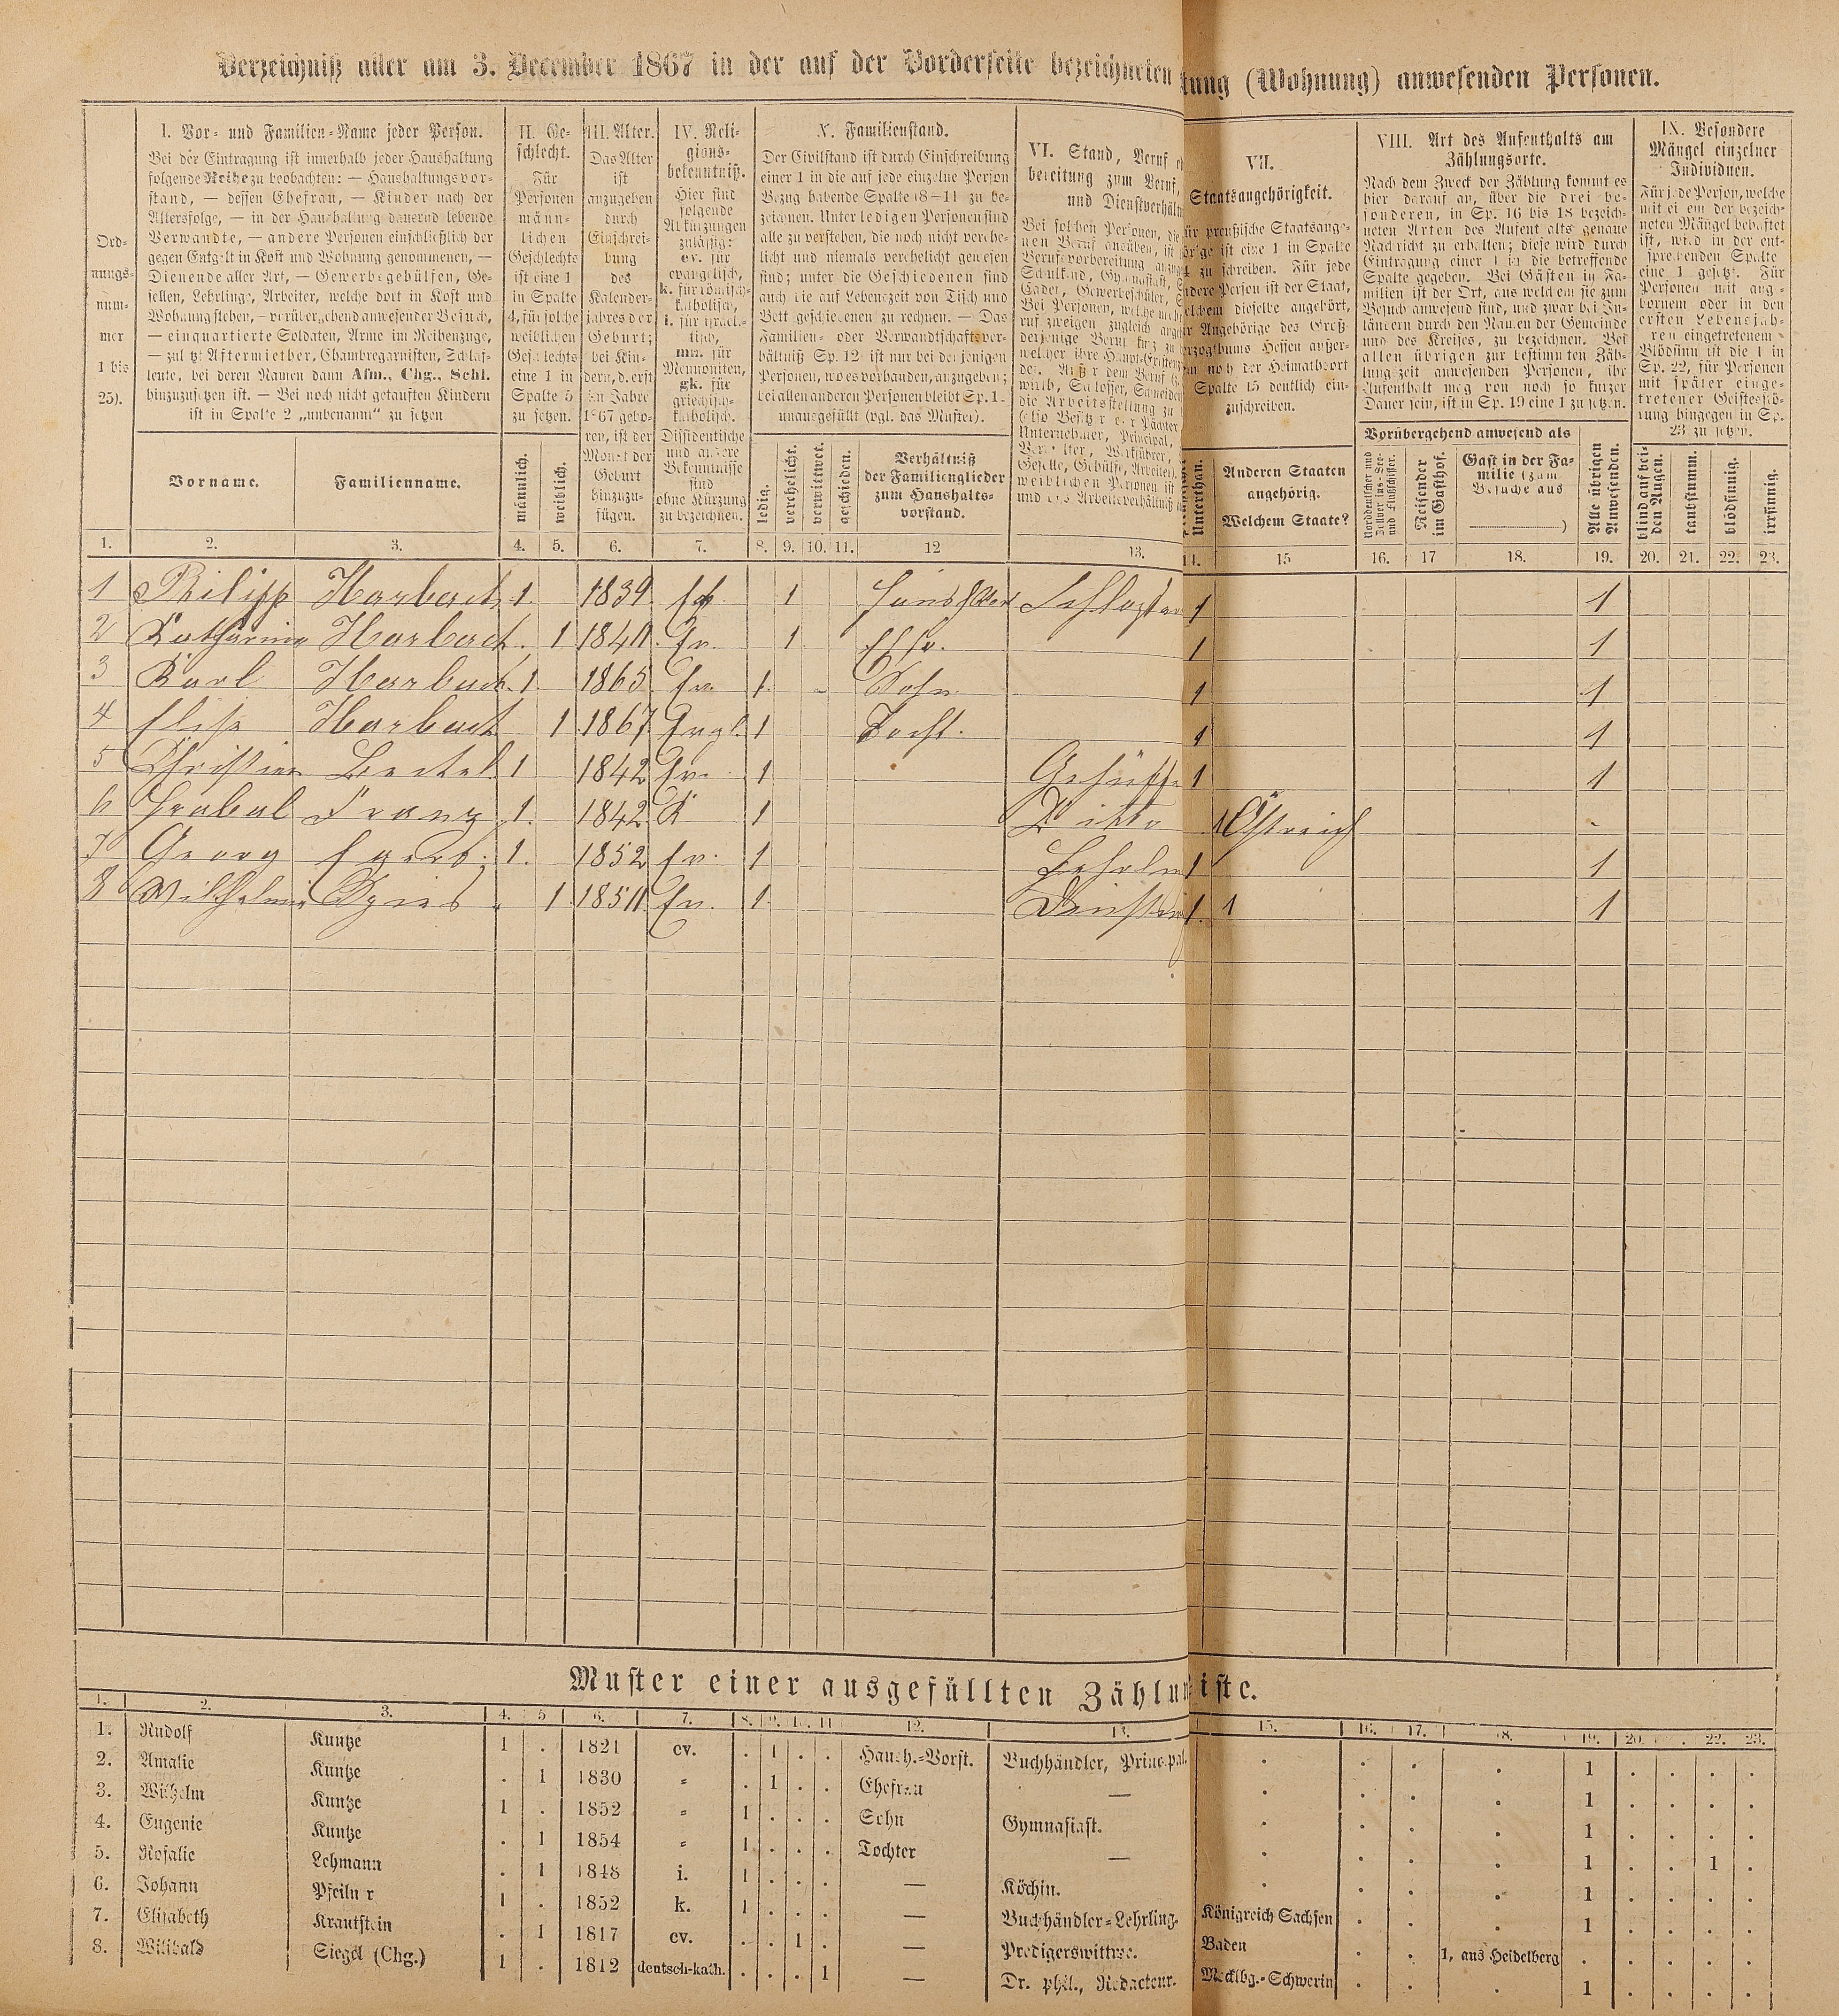 Verzeichniß aller am 3. December 1867 in der auf der Vorderseite bezeichneten tung (Wohnung) anwesenden Personen.
Ord-
nungs-
num-
mer
1 bis
25).
I. Vor- und Familien-Name jeder Person.
Bei der Eintragung ist innerhalb jeder Haushaltung
folgende Reihe zu beobachten: — Haushaltungsvor-
stand, — dessen Ehefrau, — Kinder nach der
Altersfolge, — in der Haushaltung dauernd lebende
Verwandte, — andere Personen einschließlich der
gegen Entgelt in Kost und Wohnung genommenen, —
Dienende aller Art, — Gewerbsgehülfen, Ge-
sellen, Lehrlinge, Arbeiter, welche dort in Kost und
Wohnung stehen, — vorübergehend anwesender Besuch,
— einquartierte Soldaten, Arme im Reihenzuge,
— zuletzt Aftermiether, Chambregarnisten, Schlaf-
leute, bei deren Namen dann Afm., Chg., Schl.
hinzuzusetzen ist. — Bei noch nicht getauften Kindern
ist in Spalte 2 „unbenannt“ zu setzen
Vorname.
Familienname.
II. Ge-
schlecht.
Für
Personen
männ-
lichen
Geschlechts
ist eine 1
in Spalte
4, für solche
weiblichen
Geschlechts
eine 1 in
Spalte 5
zu setzen.
männlich.
weiblich.
III. Alter.
Das Alter
ist
anzugeben
durch
Einschrei-
bung
des
Kalender-
jahres der
Geburt;
bei Kin-
dern, d. erst
im Jahre
1867 gebo-
ren, ist der
Monat der
Geburt
hinzuzu-
fügen.
IV. Reli-
gions-
bekenntniß.
Hier sind
folgende
Abkürzungen
zulässig:
ev. für
evangelisch,
k. für römisch-
katholisch,
i. für israel-
itisch,
mn. für
Mennoniten,
gk. für
griechisch-
katholisch.
Dissidentische
und andere
Bekenntnisse
sind
ohne Kürzung
zu bezeichnen.
V. Familienstand.
Der Civilstand ist durch Einschreibung
einer 1 in die auf jede einzelne Person
Bezug habende Spalte (8—11) zu be-
zeichnen. Unter ledigen Personen sind
alle zu verstehen, die noch nicht verehe-
licht und niemals verehelicht gewesen
sind; unter die Geschiedenen sind
auch die auf Lebenszeit von Tisch und
Bett geschiedenen zu rechnen. — Das
Familien- oder Verwandtschaftsver-
hältniß Sp. 12 ist nur bei denjenigen
Personen, wo es vorhanden, anzugeben;
bei allen anderen Personen bleibt Sp. 1
unausgefüllt (vgl. das Muster).
ledig.
verehelicht.
verwittwet.
geschieden.
Verhältniß
der Familienglieder
zum Haushalts-
vorstand.
VI. Stand, Beruf
bereitung zum Beruf,
und Dienstverhält
VII.
Staatsangehörigkeit.
für preußische Staatsange-
hörige ist eine 1 in Spalte
zu schreiben. Für jede
andere Person ist der Staat,
welchem dieselbe angehört,
Angehörige des Groß-
herzogthums Hessen außer-
noch der Heimathsort
Spalte 15 deutlich ein-
zuschreiben.
Unterthan.
Anderen Staaten
angehörig.
Welchem Staate?
VIII. Art des Aufenthalts am
Zählungsorte.
Nach dem Zweck der Zählung kommt es
hier darauf an, über die drei be-
sonderen, in Sp. 16 bis 18 bezeich-
neten Arten des Aufenthalts genaue
Nachricht zu erhalten; diese wird durch
Eintragung einer 1 in die betreffende
Spalte gegeben. Bei Gästen in Fa-
milien ist der Ort, aus welchem sie zum
Besuch anwesend sind, und zwar bei In-
ländern durch den Namen der Gemeinde
und des Kreises, zu bezeichnen. Bei
allen übrigen zur bestimmten Zäh-
lungszeit anwesenden Personen, ihr
Aufenthalt mag von noch so kurzer
Dauer sein, ist in Sp. 19 eine 1 zu setzen.
Vorübergehend anwesend als
Norddeutscher und
Zollvereins-See-
und Flußschiffer.
Reisender
im Gasthof.
Gast in der Fa-
milie (zum
Besuche aus
)
Alle übrigen
Anwesenden.
IX. Besondere
Mängel einzelner
Individuen.
Für jede Person, welche
mit einem der bezeich-
neten Mängel behaftet
ist, wird in der ent-
sprechenden Spalte
eine 1 gesetzt. Für
Personen mit ange-
bornem oder in den
ersten Lebensjah-
ren eingetretenem
Blödsinn ist die 1 in
Sp. 22, für Personen
mit später einge-
tretener Geistesstö-
rung hingegen in Sp.
23 zu setzen.
blind auf bei-
den Augen.
taubstumm.
blödsinnig.
irrsinnig.
1. 2. 3. 4. 5. 6. 7. 8. 9. 10. 11. 12 13. 14. 15 16. 17 18. 19. 20. 21. 22. 23.
1 Philipp Harbach 1. 1839 1 1 1
2 Katharina Harbach 1 1840 Ev. 1 Ehfr. 1 1
3 Karl Harbach 1. 1865 Ev. 1. Sohn 1 1
4 Elise Harbach 1 1867 1 Tocht. 1 1
5 Christian Bechtel 1 1842 Ev. 1 Gehülfe 1 1
6 Hrabal Franz 1. 1842 K 1 Ditto 1 Östreich
7 Georg 1. 1852 Ev. 1 Lehrlin 1 1
8 Wilhelmin Spies 1 1850 Ev. 1. 1. 1 1
Muster einer ausgefüllten Zählu iste.
1. 2. 3. 4. 5 6. 7. 8. 9. 1. 11 12. 13. 15. 16. 17. 18. 19. 20. 22. 23.
1. Rudolf Kuntze 1 . 1821 ev. . 1 . . Haush.-Vorst. Buchhändler, Principal. . . . . 1 . . . .
2. Amalie Kuntze . 1 1830 „ . 1 . . Ehefrau — . . . . 1 . . . .
3. Wilhelm Kuntze 1 . 1852 „ 1 . . . Sohn Gymnasiast. . . . . 1 . . . .
4. Eugenie Kuntze . 1 1854 „ 1 . . . Tochter — . . . . 1 . . 1 .
5. Rosalie Lehmann . 1 1848 i. 1 . . . — Köchin. . . . . 1 . . . .
6. Johann Pfeilner 1 . 1852 k. 1 . . . — Buchhändler-Lehrling. Königreich Sachsen . . . 1 . . . .
7. Elisabeth Krautstein . 1 1817 ev. . . 1 . — Predigerswittwe. Baden . . 1, aus Heidelberg . . . . .
8. Wilibald Siegel (Chg.) 1 . 1812 deutsch-kath. . . . 1 — Dr. phil., Redacteur. Mecklbg.-Schwerin . . . 1 . . . .